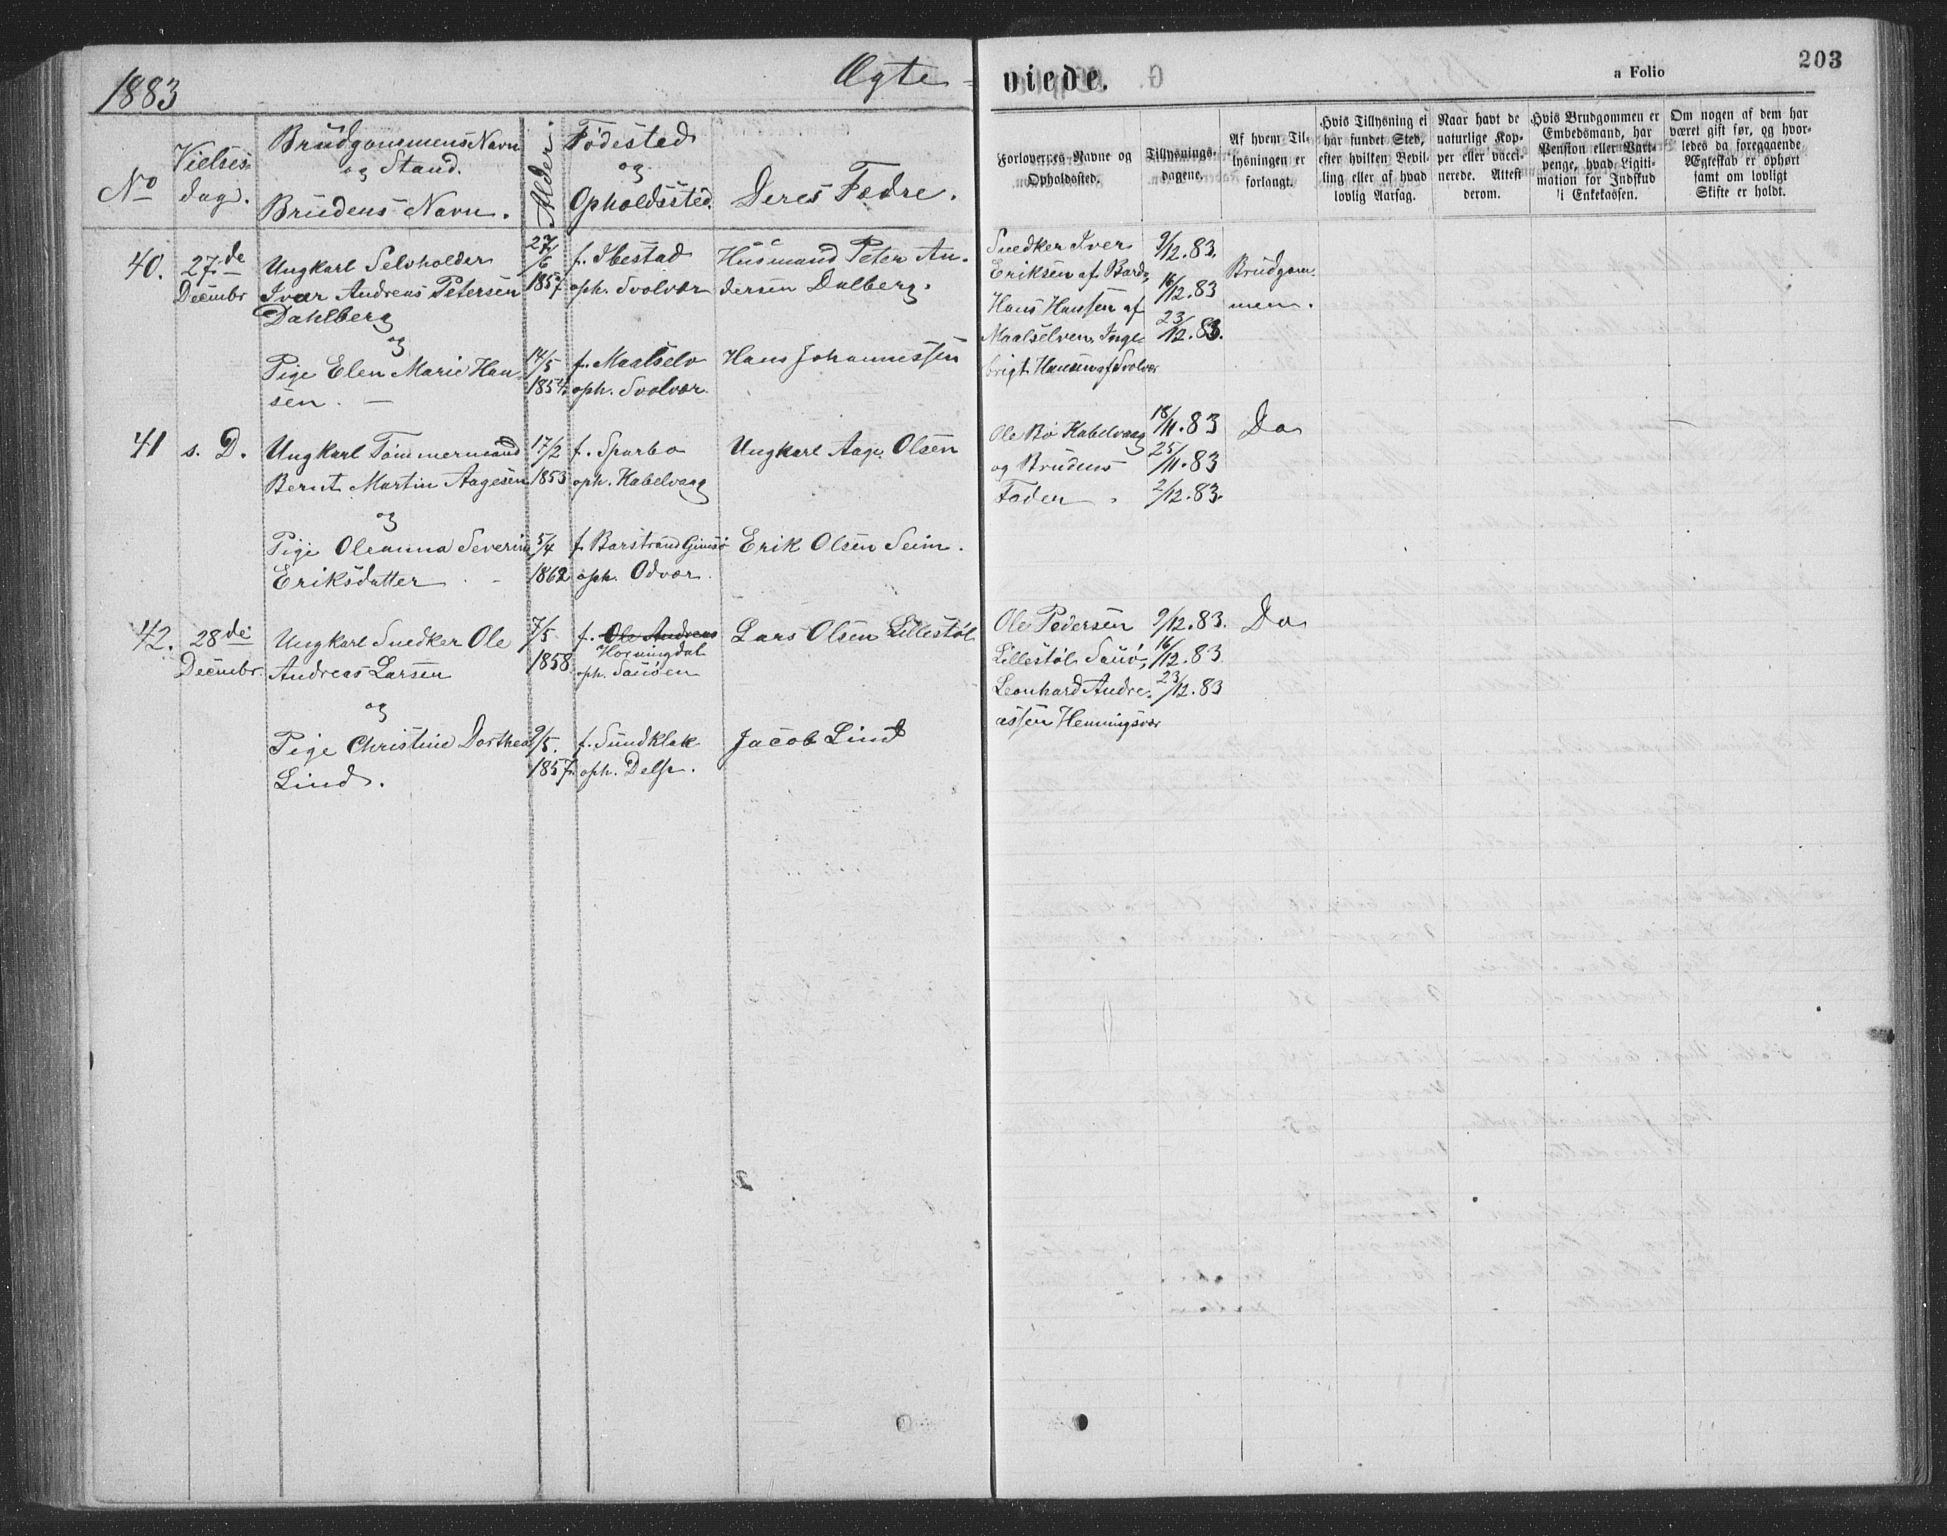 1883
Ægte-
viede.
a Folio
203
No
Vielses-
dag.
Brudgommens Navn
og Stand.
Brudens Navn.
Alder:
Fødested
og
Opholdssted.
Deres Fædre.
Forlovernes Navne og
Opholdssted.
Tillysnings-
dagene.
Af hvem Til-
lysningen er
forlangt.
Hvis Tillysning ei
har fundet Sted,
efter hvilken Bevil-
ling eller af hvad
lovlig Aarsag.
Naar havt de
naturlige Kop-
per eller vacci-
nerede. Attest
derom.
Hvis Brudgommen er
Embedsmand, har
Pension eller Vart-
penge, hvad Ligiti-
mation for Indskud
i Enkekassen.
Om nogen af dem har
været gift før, og hvor-
ledes da foregaaende
Ægteskab er ophørt
samt om lovligt
Skifte er holdt.
40.
27de
Decembr
Ungkarl Selvholder
Ivar Andreas Petersen
Dahlberg
og
Pige Elen Marie Han-
sen. —
27/6
1857.
14/5
1854.
f. Ibestad
oph. Svolvær
f. Maalselv
oph. Svolvær.
Husmand Peter An-
dersen Dalberg.
Hans Johannessen
Snedker Iver
Eriksen af Bardo,
Hans Hansen af
Maalselven, Inge-
brigt Hansen af Svolvær
9/12.83.
16/12.83
23/12.83.
Brudgom-
men.
41
s. D.
Ungkarl Tømmermand
Bernt Martin Aagesen
og
Pige Oleanna Severine
Eriksdatter
17/2
1853
5/4
1862
f. Sparbo
oph. Kabelvaag
f. Barstrand Gimsø
oph. Odvær.
Ungkarl Aage Olsen
Erik Olsen Seim.
Ole Bø Kabelvaag
og Brudens
Fader.
18/11.83
25/11.83
2/12.83.
Do
42.
28de
Decembr.
Ungkarl Snedker Ole
Andreas Larsen
og
Pige Christine Dorthea
Lind.
7/5
1858.
9/5.
1857.
f. Ole Andreas
Horningdal
oph. Sauøen
f. Sundklak
oph. Delp.
Lars Olsen Lillestøl
Jacob Lind
Ole Pedersen
Lillestøl Sauø,
Leonhard Andre-
assen Henningsvær
9/12.83.
16/12.83.
23/12.83
Do